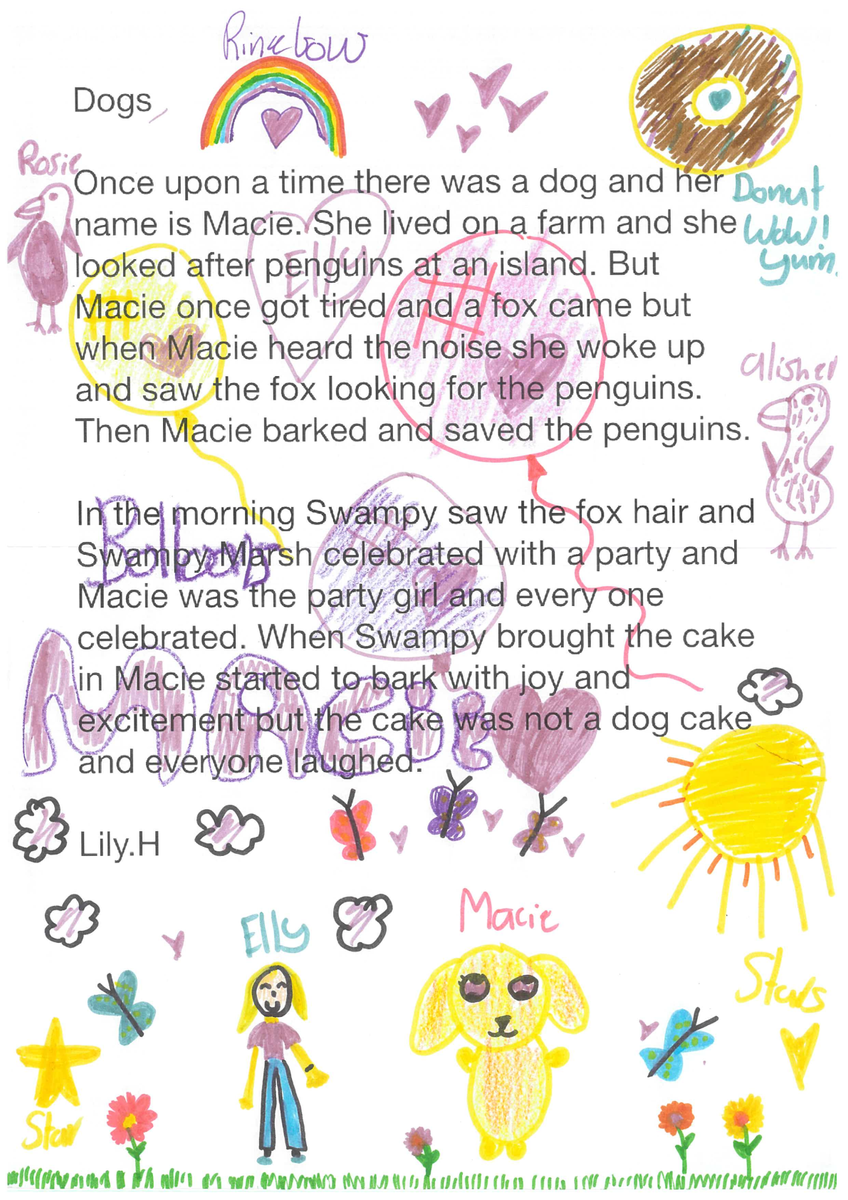 Rinebow
Dogs
Rosie
Once upon a time there was a dog and her
name is Macie. She lived on a farm and she
looked after penguins at an island. But
Macie once got tired and a fox came but
when Macie heard the noise she woke up
and saw the fox looking for the penguins.
Then Macie barked and saved the penguins.
Donut
Wow!
Yum.
Elly
alisher
In the morning Swampy saw the fox hair and
Swampy Marsh celebrated with a party and
Macie was the party girl and every one
celebrated. When Swampy brought the cake
in Macie started to bark with joy and
excitement but the cake was not a dog cake
and everyone laughed.
MACIE
Lily.H
Elly
Macie
Stars
Star